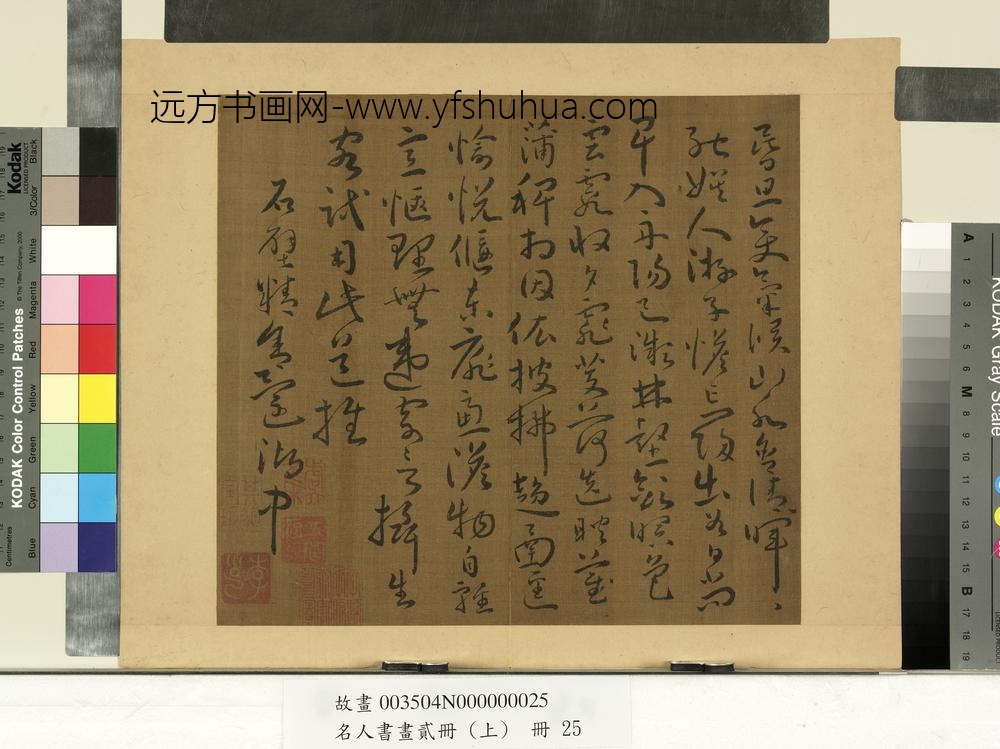 远方书画网-www.yfshuhua.com
昏旦變氣候山水含清暉〻
能娛人游子憺忘歸出谷日尚
早入舟陽已微林壑斂暝色
雲霞收夕霏芰荷迭映蔚
蒲稗相因依披拂趨南徑
愉悅偃東扉慮澹物自輕
意愜理無違寄言攝生
客試用此道推
石壁精舍還湖中
Kodak
LICENSED PRODUCT
KODAK Color Control Patches
© The Tiffen Company, 2000
Centimetres
Blue
Cyan
Green
Yellow
Red
Magenta
White
3/Color
Black
KODAK Gray Scale
A 1 2 3 4 5 6 M 8 9 10 11 12 13 14 15 B 17 18 19
故畫 003504N000000025
名人書畫貳冊（上） 冊 25